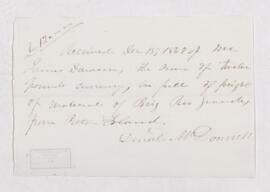 Received Dec 15, 1828 of Mr
James Dawson, the sum of twelve
pounds currency, in full of freight
of materials of Brig Rio Grande,
from Island.
McDonnell